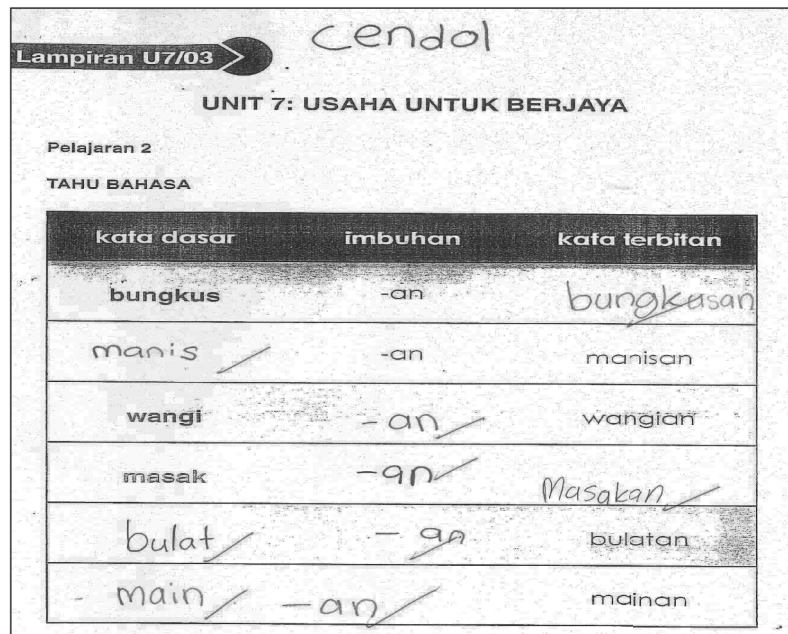 cendol
Lampiran U7/03
UNIT 7: USAHA UNTUK BERJAYA
Pelajaran 2
TAHU BAHASA
kata dasar imbuhan kata terbitan
bungkus -an bungkusan
manis -an manisan
wangi -an wangian
masak -an Masakan
bulat -an bulatan
main -an mainan